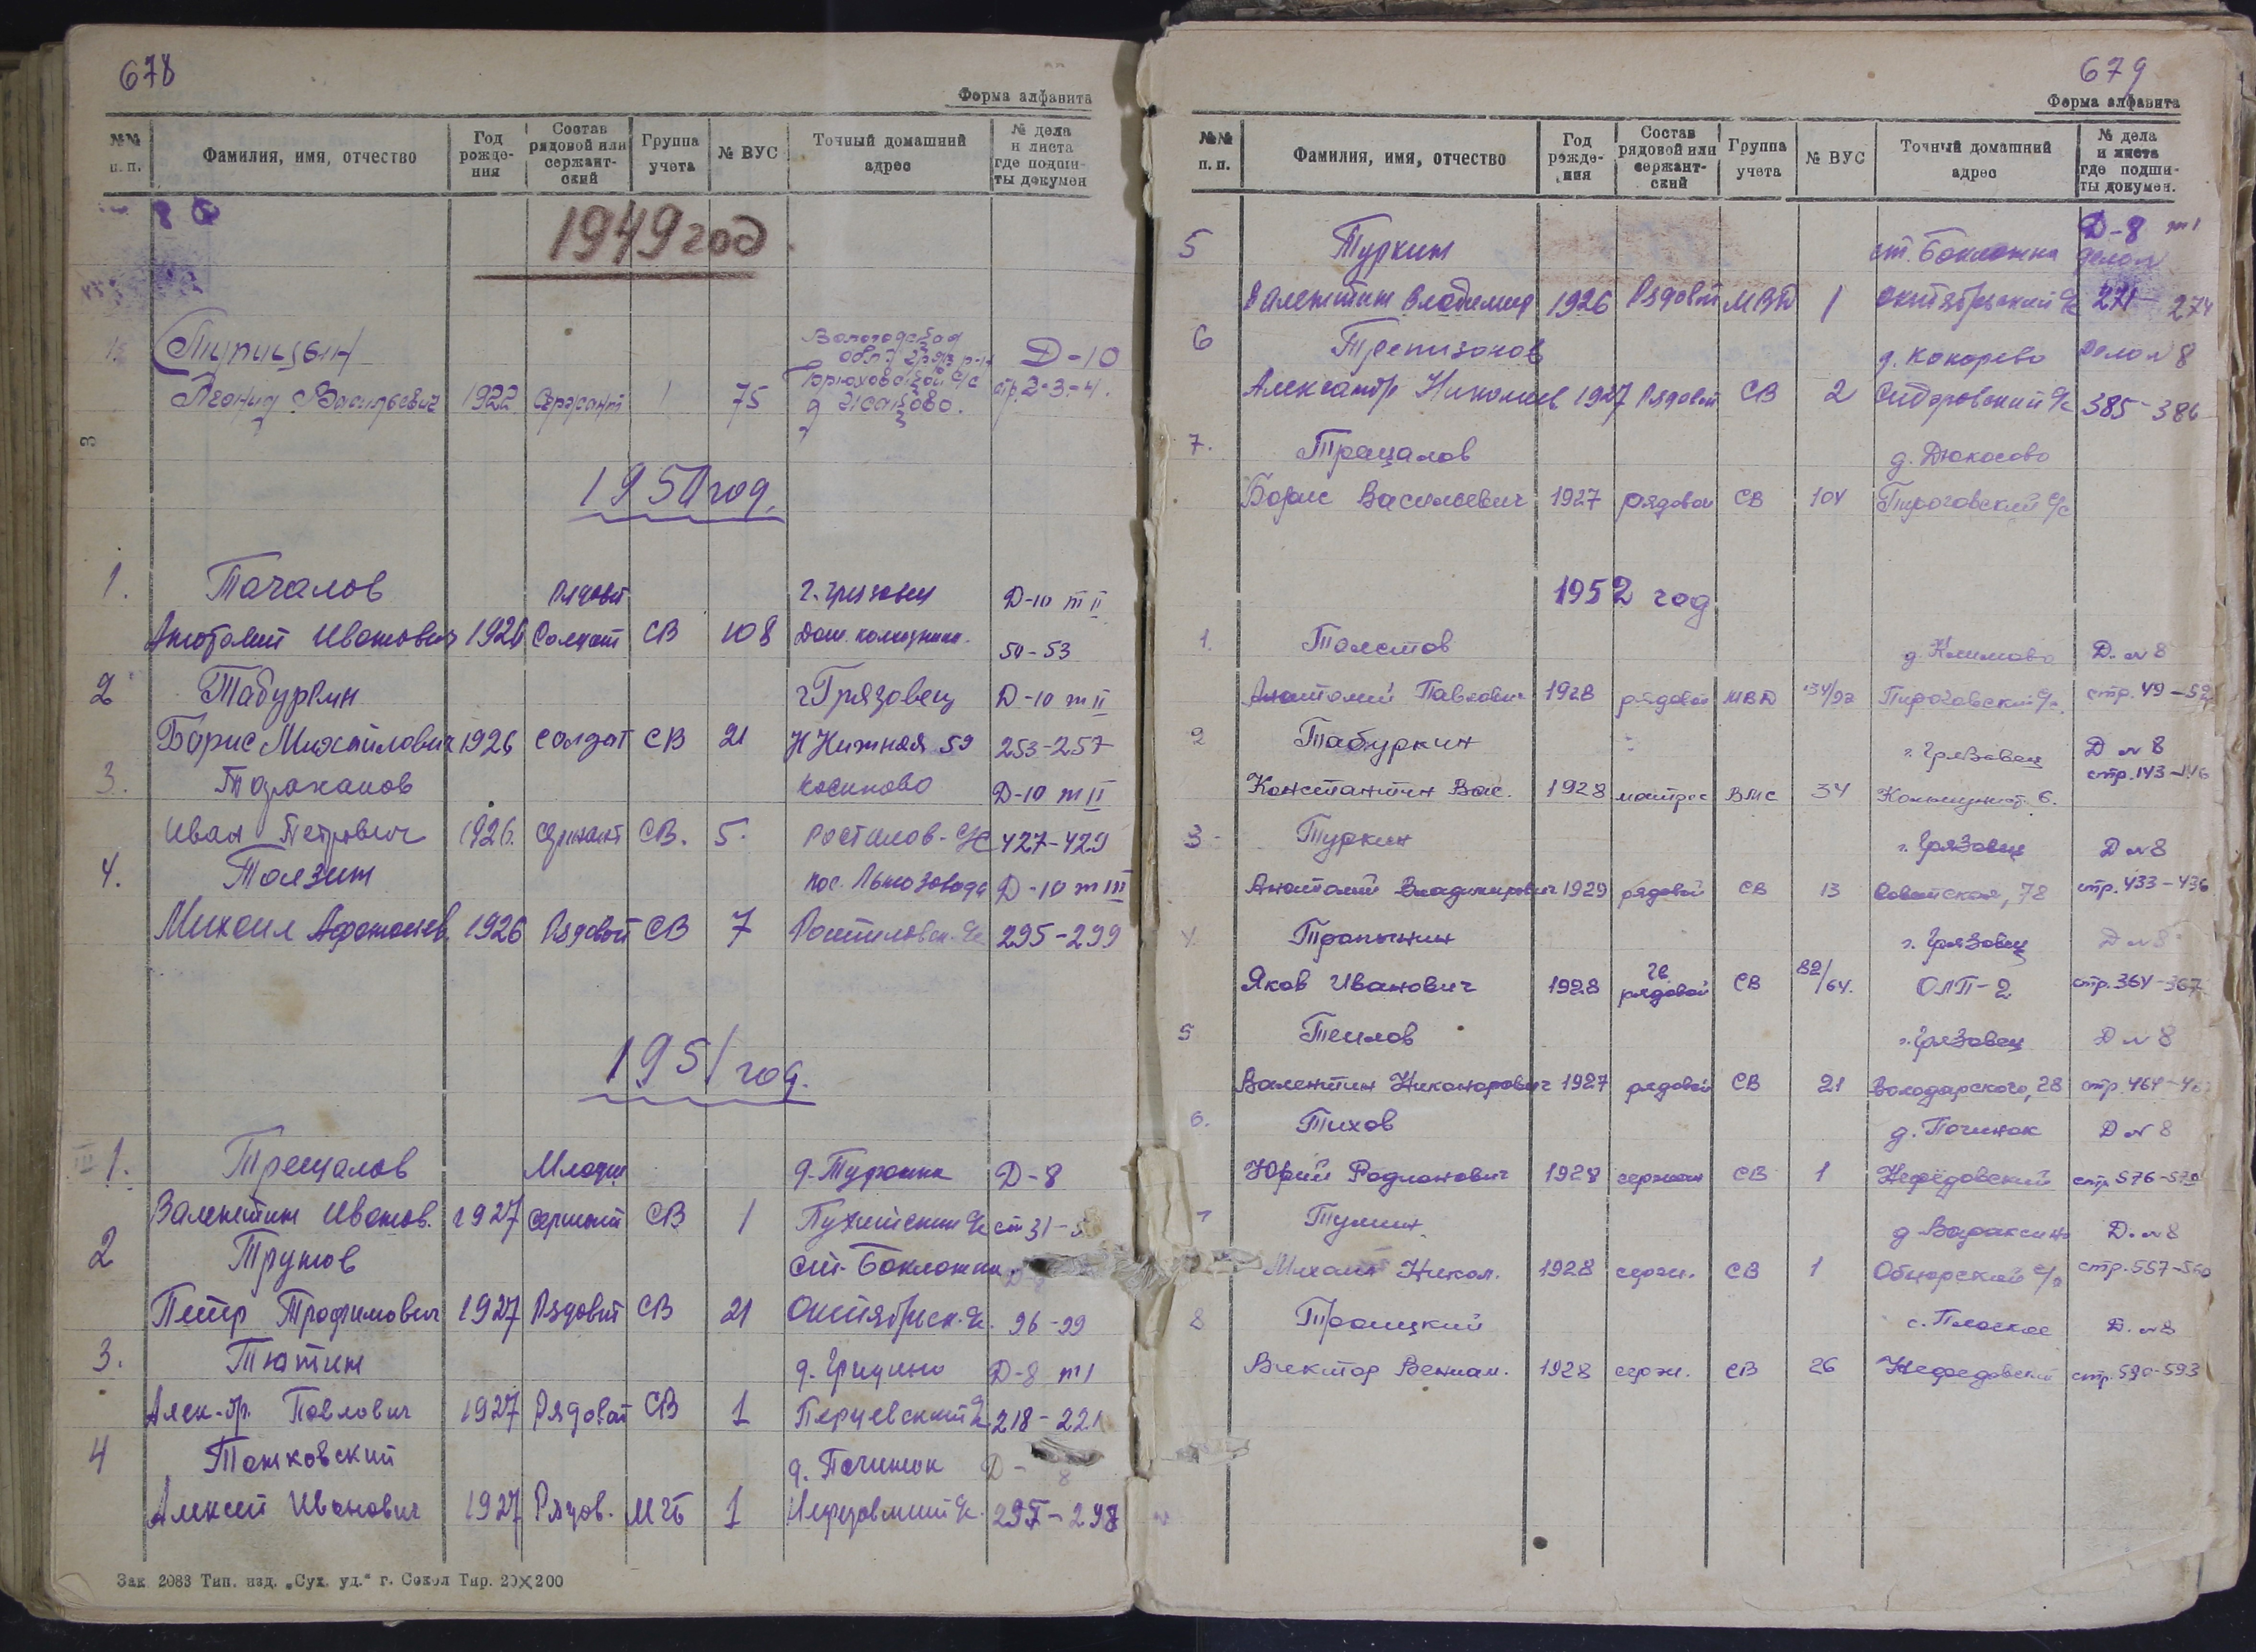 678
Форма алфавита
№№ п. п. Фамилия, имя, отчество Год рожде- ния Состав рядовой или сержант- ский Группа учета № ВУС Точный домашний адрес № дела и листа где подши- ты докумен
1949 год.
Тупицын Вологодская обл. Гряз. р-н Д-10
Леонид Васильевич 1922 Сержант 1 75 Брюховской с/с д Исаково. стр. 2-3-4.
1950 год.
1. Тачалов Рядовой г. Грязовец Д-10 т II
Анатолий Иванович 1926 Солдат СВ 108 Дом. колхозника. 50-53
2 Табуркин г Грязовец Д-10 т II
Борис Михайлович 1926 солдат СВ 21 Н Нижная 59 253-257
3. Тараканов Косиково Д-10 т II
Иван Петрович 1926. сержант СВ. 5. Ростилов- с/с 427-429
4. Толзин пос. Льнозавода Д-10 т III
Михаил Афанасьев. 1926 Рядовой СВ 7 Ростиловск. с/с 295-299
1951 год.
1. Трещалов Младш д. Д-8
Валентин Иванов. 1927 сержант СВ 1 с/с ст 31-5
2 Трунов ст. Бакланка
Петр Трофимович 1927 Рядовой СВ 21 Октябрьск. с/с. 96-99
3. Тютин д. Гридино Д-8 т 1
Алек-др. Павлович 1927 Рядовой СВ 1 Перцевский с/с. 218-221
4 Тошковский д. Починок Д- 8
Алексей Иванович 1927 Рядов. МГБ 1 Нефедовский с/с. 295-298
Зак 2083 Тип. изд. „Сух. уд.“ г. Сокол Тир. 20×200
679
Форма алфавита
№№ п. п. Фамилия, имя, отчество Год рожде- ния Состав рядовой или сержант- ский Группа учета № ВУС Точный домашний адрес № дела и листа где подши- ты докумен.
5 Туркин ст. Бакланка Д-8 т 1
Валентин Владимир 1926 Рядовой МВД 1 Октябрьский с/с 271-274
6 Трепизонов д. Кокорево Дело № 8
Александр Николаев 1927 Рядовой СВ 2 Сидоровский с/с 385-386
7. Трещалов д. Дюкосово
Борис Васильевич 1927 рядовой СВ 104 Пироговский с/с
1952 год
1. Толстов д. Климово Д. № 8
Анатолий Павлович 1928 рядовой МВД 134/97 Пироговский с/с. стр. 49-52
2 Табуркин г. Грязовец Д № 8
Константин Вас. 1928 матрос ВМС 34 Коммунист. 6. стр. 143-146
3 Туркин г. Грязовец Д № 8
Анатолий Владимирович 1929 рядовой СВ 13 Советская, 78 стр. 433-436
4 Тропынин г. Грязовец Д № 8
Яков Иванович 1928 гв рядовой СВ 82/64. ОЛП-2 стр. 364-367
5 Теплов г. Грязовец Д № 8
Валентин Никонорович 1927 рядовой СВ 21 Володарского, 28 стр. 464-46
6. Тихов д. Починок Д № 8
Юрий Родионович 1928 сержант СВ 1 Нефёдовский стр 576-579
7 Тумин д Вараксино Д. № 8
Михаил Никол. 1928 серж. СВ 1 Обнорский с/с стр. 557-560
8 Троицкий с. Плоское Д. № 8
Виктор Вениам. 1928 серж. СВ 26 Нефедовский стр. 590-593